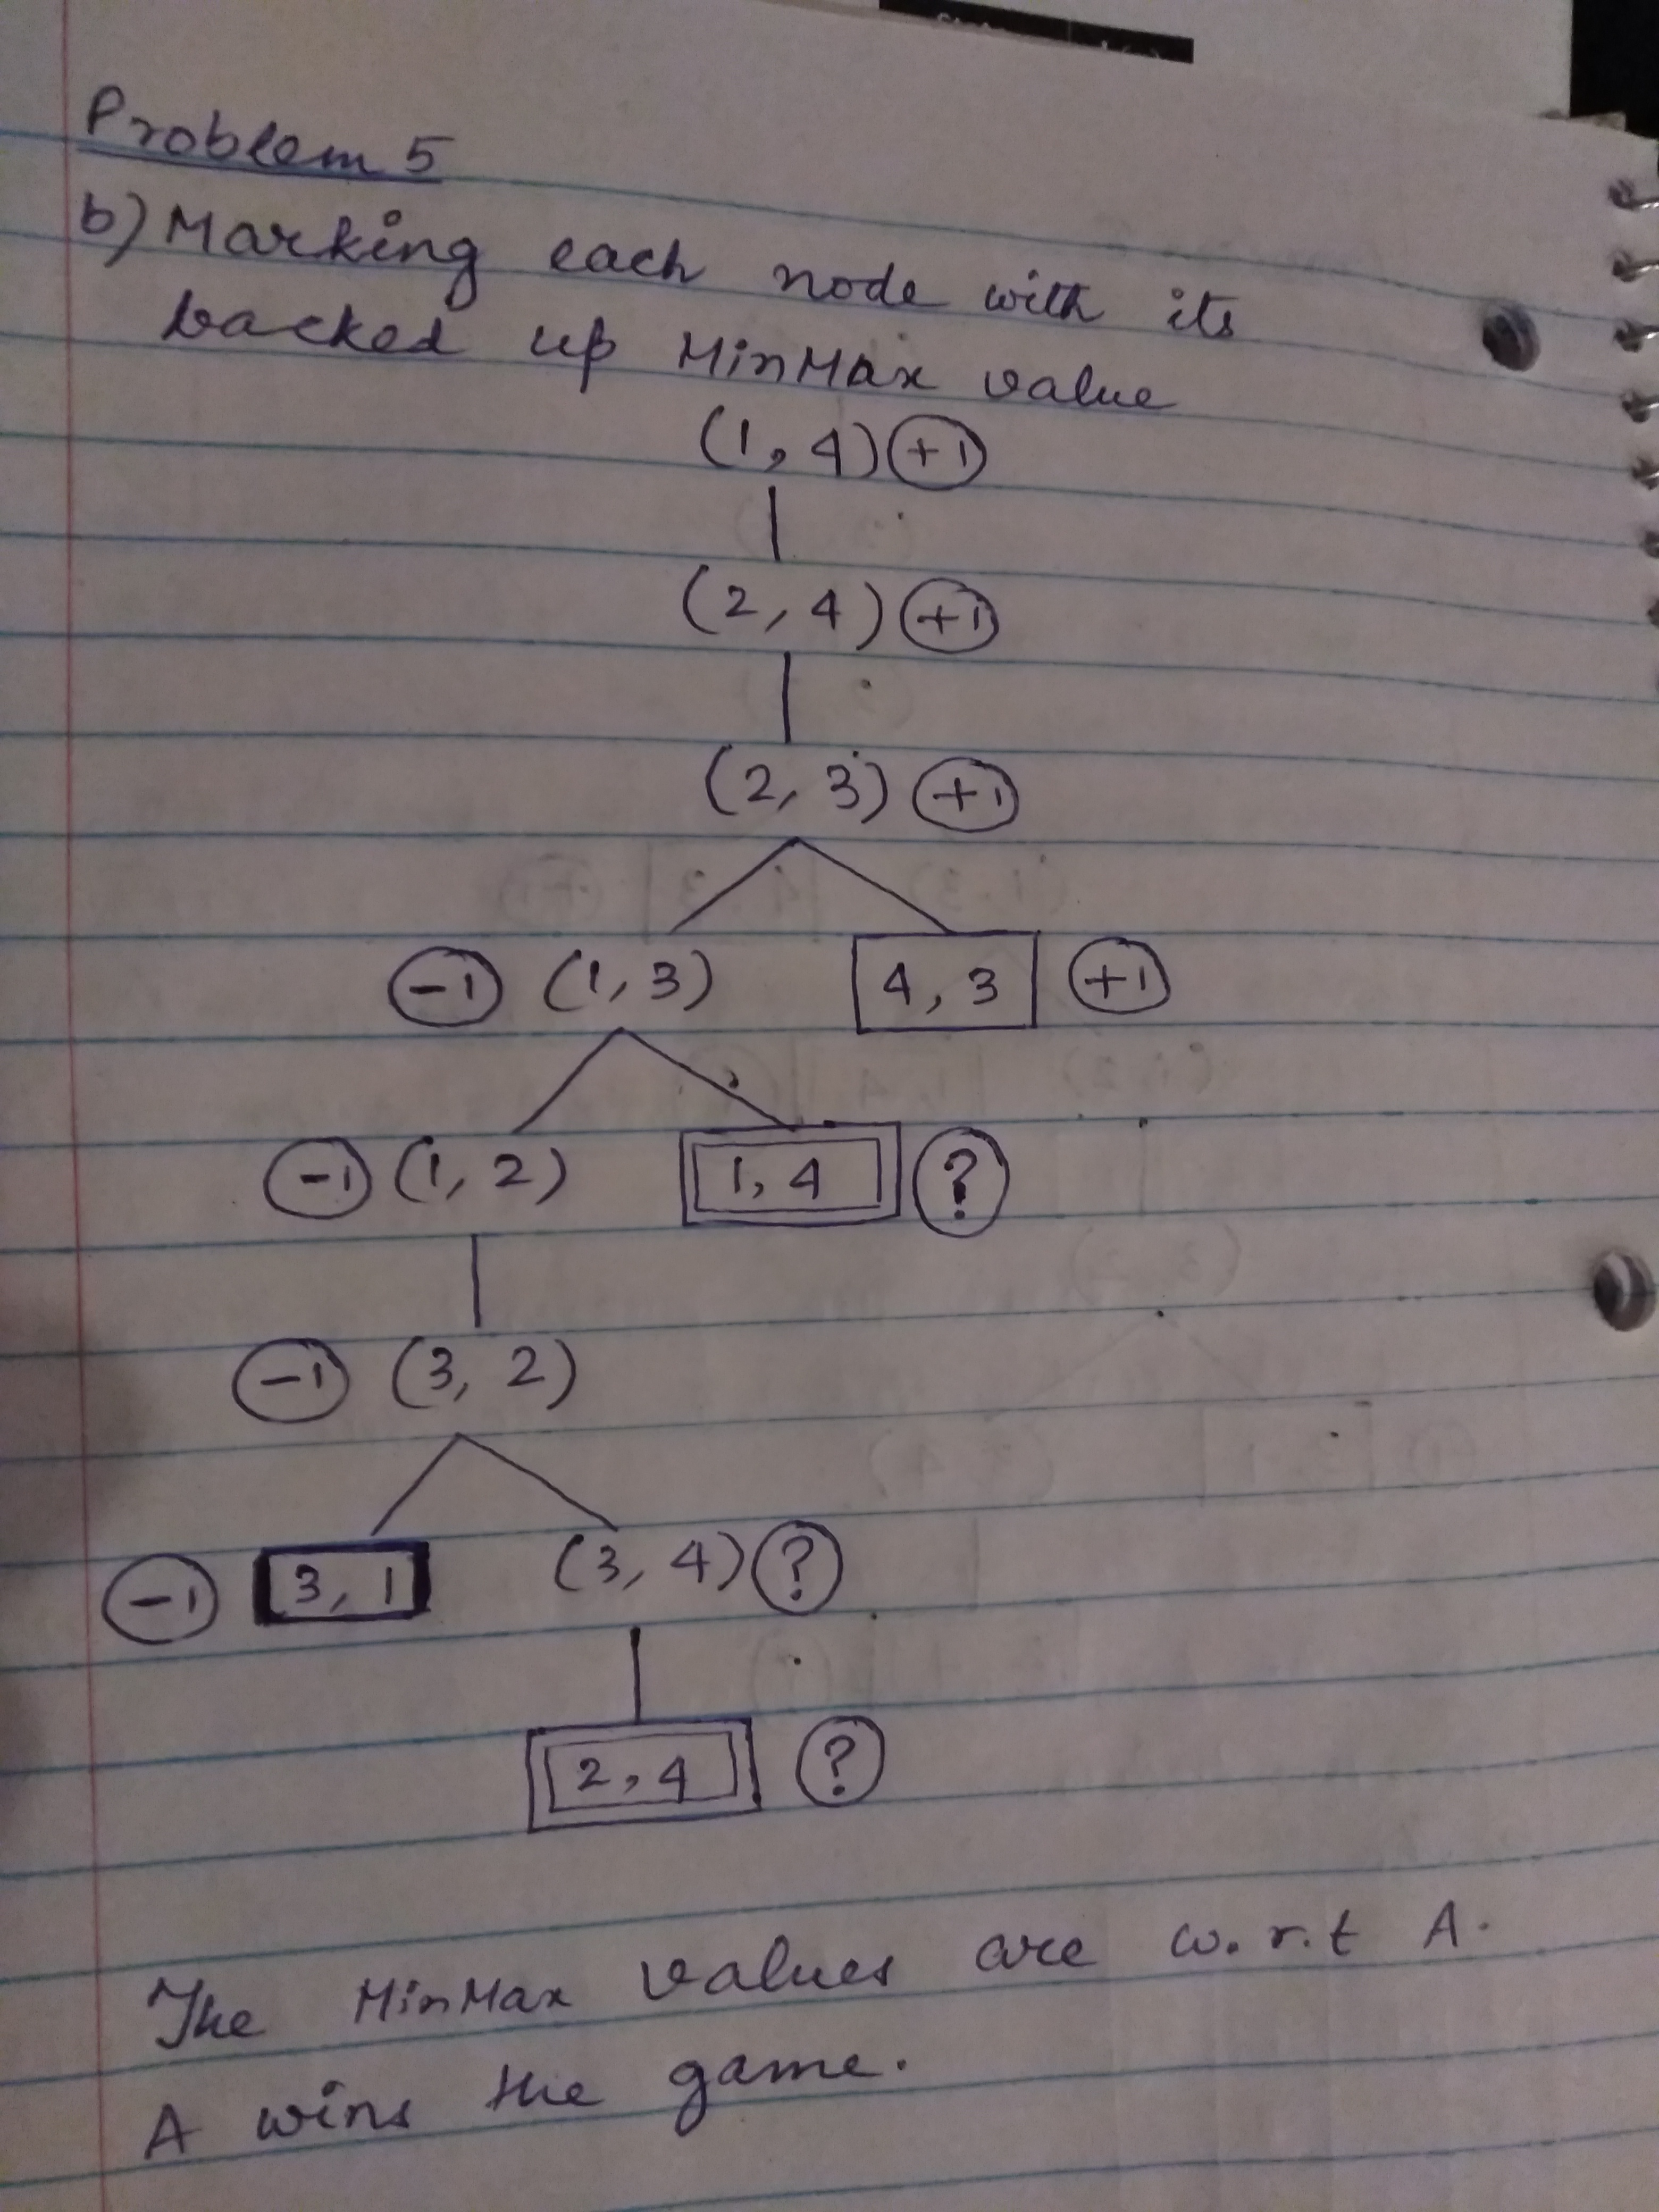 Problem 5
b) Marking each node with its
backed up MinMax value
(1, 4) +1
(2, 4) +1
(2, 3) +1
-1 (1, 3) 4, 3 +1
-1 (1, 2) 1, 4 ?
-1 (3, 2)
-1 3, 1 (3, 4) ?
2, 4 ?
The MinMax values are w.r.t A.
A wins the game.